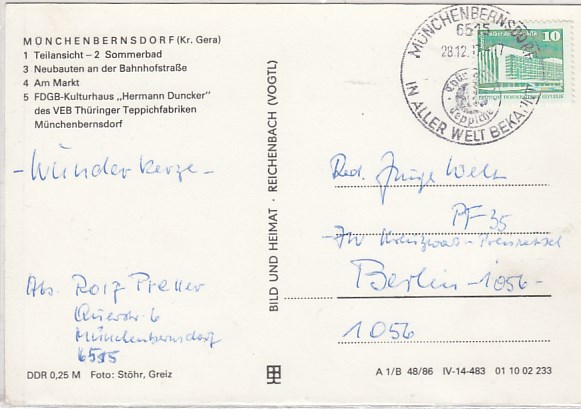 MÜNCHENBERNSDORF (Kr. Gera)
1 Teilansicht – 2 Sommerbad
3 Neubauten an der Bahnhofstraße
4 Am Markt
5 FDGB-Kulturhaus „Hermann Duncker"
des VEB Thüringer Teppichfabriken
Münchenbernsdorf
- Wunderkerze -
Abs. Rolf Preller
Querstr. 6
Münchenbernsdorf
6515
DDR 0,25 M Foto: Stöhr, Greiz
BILD UND HEIMAT · REICHENBACH (VOGTL)
MÜNCHENBERNSDORF
6515
28.12.
IN ALLER WELT BEKANNT
Teppiche
10
Red. Junge Welt
PF 35
- JW Kreuzwort-Preisrätsel
Berlin - 1056 -
1056
A 1/B 48/86 IV-14-483 01 10 02 233